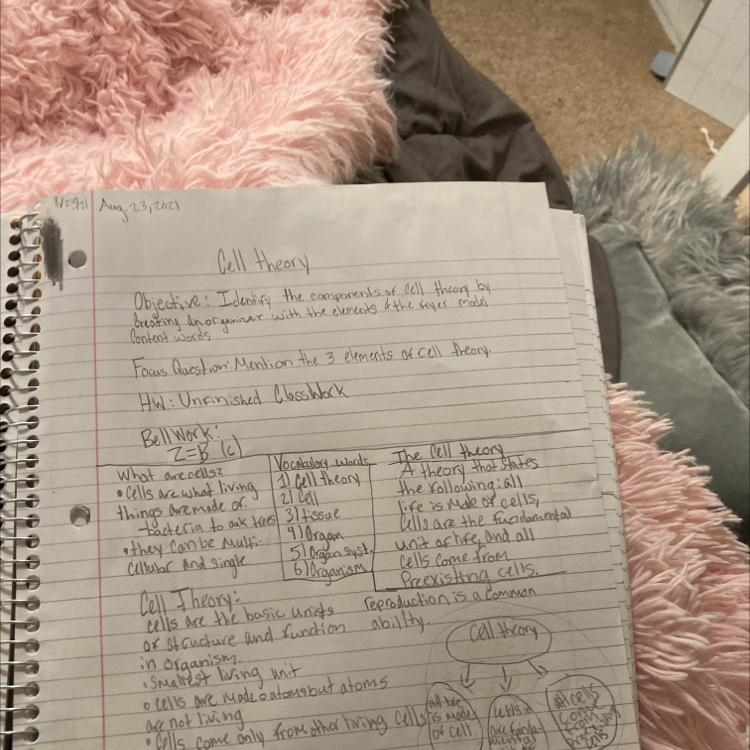 8/23/21 Aug. 23, 2021
Cell theory
Objective: Identify the components of Cell theory by
Creating an organizer with the elements & the Frayer model
Content words
Focus Question: Mention the 3 elements of cell theory.
HW: Unfinished ClassWork
Bell Work:
Z=B (C)
What are cells?
• Cells are what living
things are made of.
- bacteria to oak trees
• they can be multi-
cellular and single
Vocabulary words
1) Cell theory
2) Cell
3) tissue
4) Organ
5) Organ syst.
6) Organism
The Cell theory
A theory that states
the following: all
life is made of cells,
Cells are the fundamental
unit of life, and all
cells come from
Preexisting cells.
Cell Theory:
cells are the basic units
of structure and function
in organism.
• Smallest living unit
• Cells are made o atoms but atoms
are not living
• Cells come only from other living cells
reproduction is a common
ability.
Cell theory
all life
is made
of cell
cells
are funda-
mental
all cells
come
from